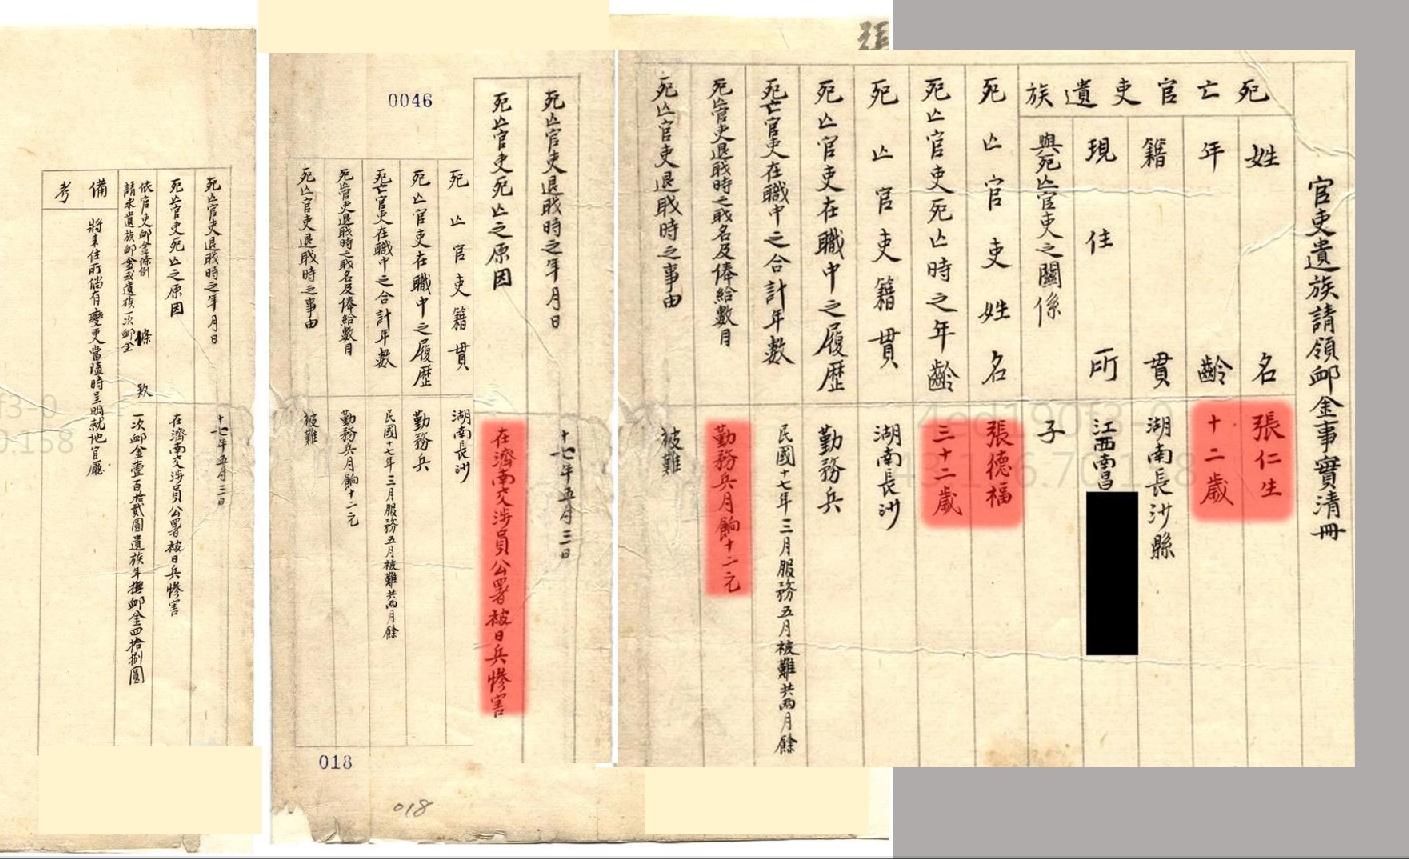 張
官吏遺族請領卹金事實清冊
死亡官吏遺族
姓名 張仁生
年齡 十二歲
籍貫 湖南長沙縣
現住所 江西南昌
與死亡官吏之關係 子
死亡官吏姓名 張德福
死亡官吏死亡時之年齡 三十二歲
死亡官吏籍貫 湖南長沙
死亡官吏在職中之履歷 勤務兵
死亡官吏在職中之合計年數 民國十七年三月服務五月被難共兩月餘
死亡官吏退職時之職名及俸給數目 勤務兵月餉十二元
死亡官吏退職時之事由 被難
死亡官吏退職時之年月日 十七年五月三日
死亡官吏死亡之原因 在濟南交涉員公署被日兵慘害
0046
死亡官吏籍貫 湖南長沙
死亡官吏在職中之履歷 勤務兵
死亡官吏在職中之合計年數 民國十七年三月服務五月被難共兩月餘
死亡官吏退職時之職名及俸給數目 勤務兵月餉十二元
死亡官吏退職時之事由 被難
018
018
死亡官吏退職時之年月日 十七年五月三日
死亡官吏死亡之原因 在濟南交涉員公署被日兵慘害
依官吏卹金條例 條 玖
請求遺族卹金或遺族一次卹金 一次卹金壹百拾貳圓遺族年撫卹金四拾捌圓
備考 將來住所倘有變更當隨時呈明就地官廳